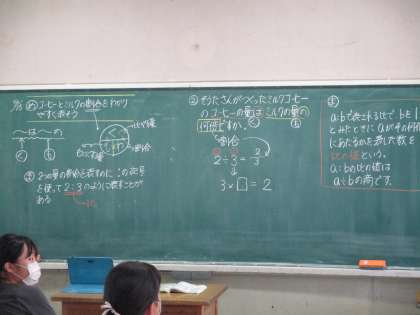 め コーヒーとミルクの割合をわかり
やすく表そう
〜は〜の
比べる量
割合
もとにする量
ま 2つの量の割合を表すのに :の記号
を使って 2:3 のように表すことが
ある
比
② そうたさんがつくったミルクコーヒー
のコーヒーの量はミルクの量の
何倍ですか。
割合
2÷3=2/3
3×□=2
ま
a:bで表された比で bを1
とみたときに aがその何倍
にあたるかを表した数を
比の値という。
a:bの比の値は
a÷bの商です。